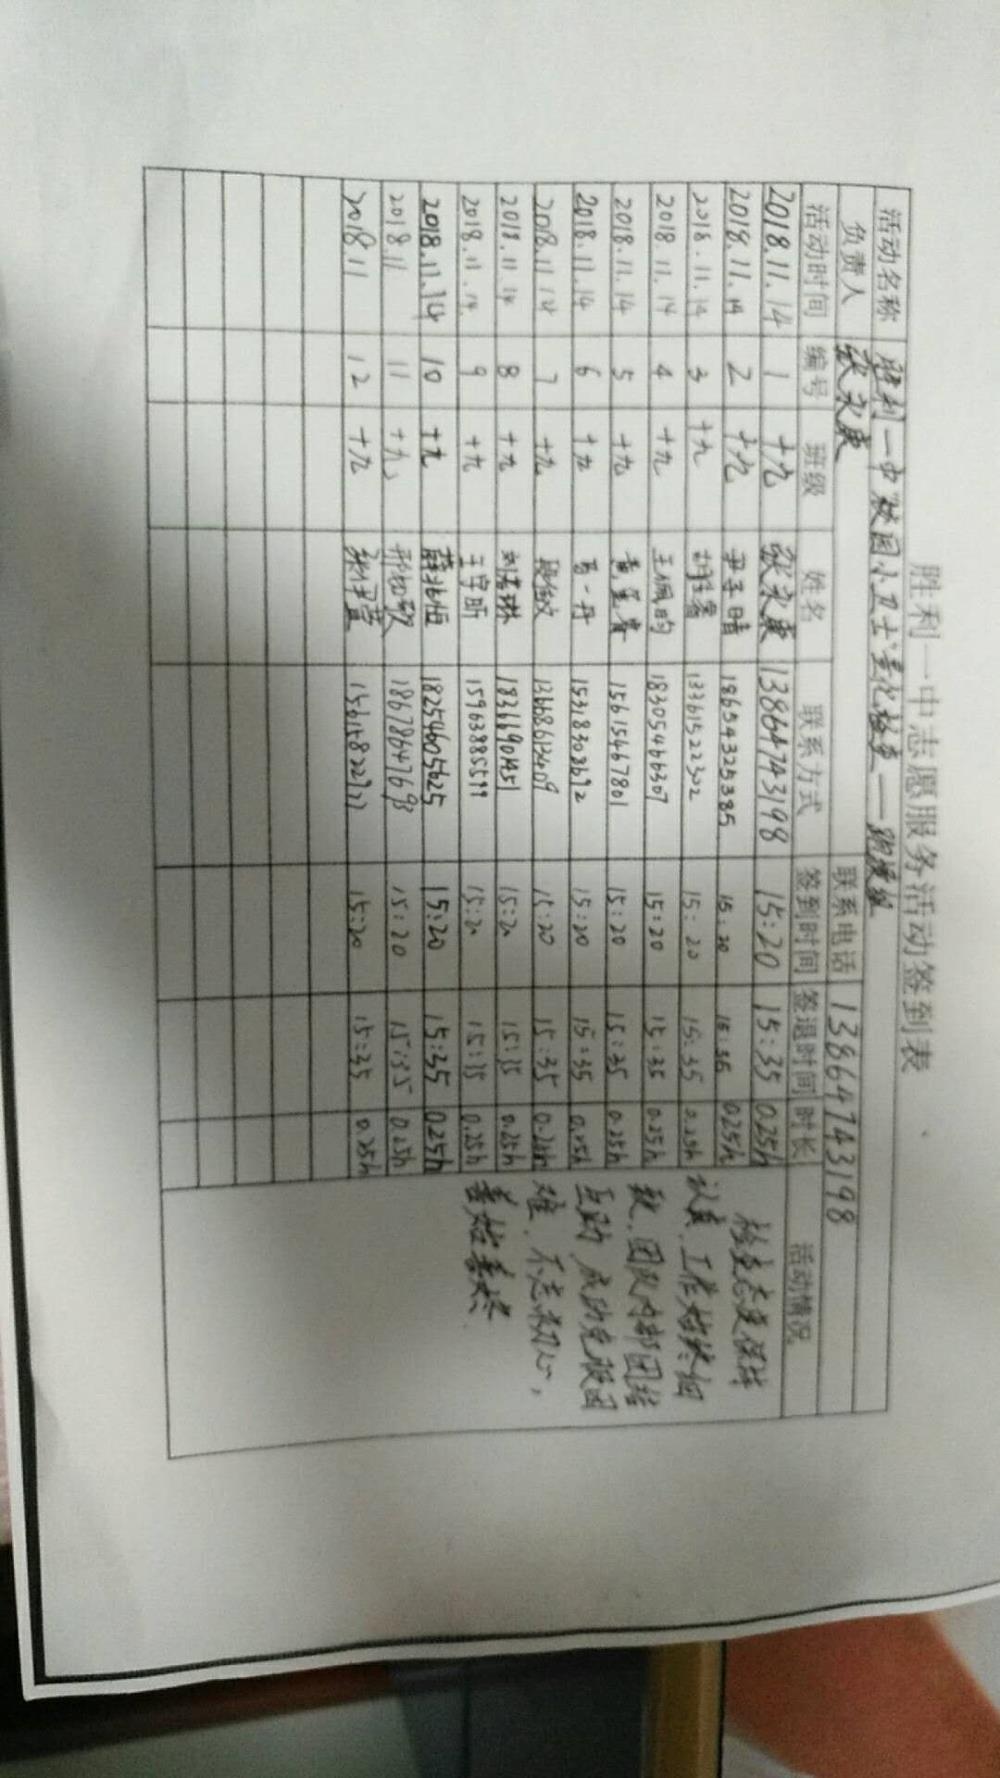 胜利一中志愿服务活动签到表
活动名称 胜利一中校园小卫士量化检查——跑操组
负责人 张永康 联系电话 13864743198
活动时间 编号 班级 姓名 联系方式 签到时间 签退时间 时长 活动情况
2018.11.14 1 十九 张永康 13864743198 15:20 15:35 0.25h
2018.11.14 2 十九 尹子晴 18654325385 15:20 15:35 0.25h
2018.11.14 3 十九 13361522302 15:20 15:35 0.25h
2018.11.14 4 十九 王佩昀 18305466307 15:20 15:35 0.25h
2018.11.14 5 十九 15615467801 15:20 15:35 0.25h
2018.11.14 6 十九 一丹 15318308692 15:20 15:35 0.25h
2018.11.14 7 十九 13668613409 15:20 15:35 0.25h
2018.11.14 8 十九 刘若琳 18366901451 15:20 15:35 0.25h
2018.11.14 9 十九 王宇昕 15963885599 15:20 15:35 0.25h
2018.11.14 10 十九 薛兆恒 18254605625 15:20 15:35 0.25h
2018.11 11 十九 18678647693 15:20 15:35 0.25h
2018.11 12 十九 15:20 15:35 0.25h
检查态度保持
认真、工作始终细
致、团队内部团结
互助、成功克服困
难、不忘初心，
善始善终.